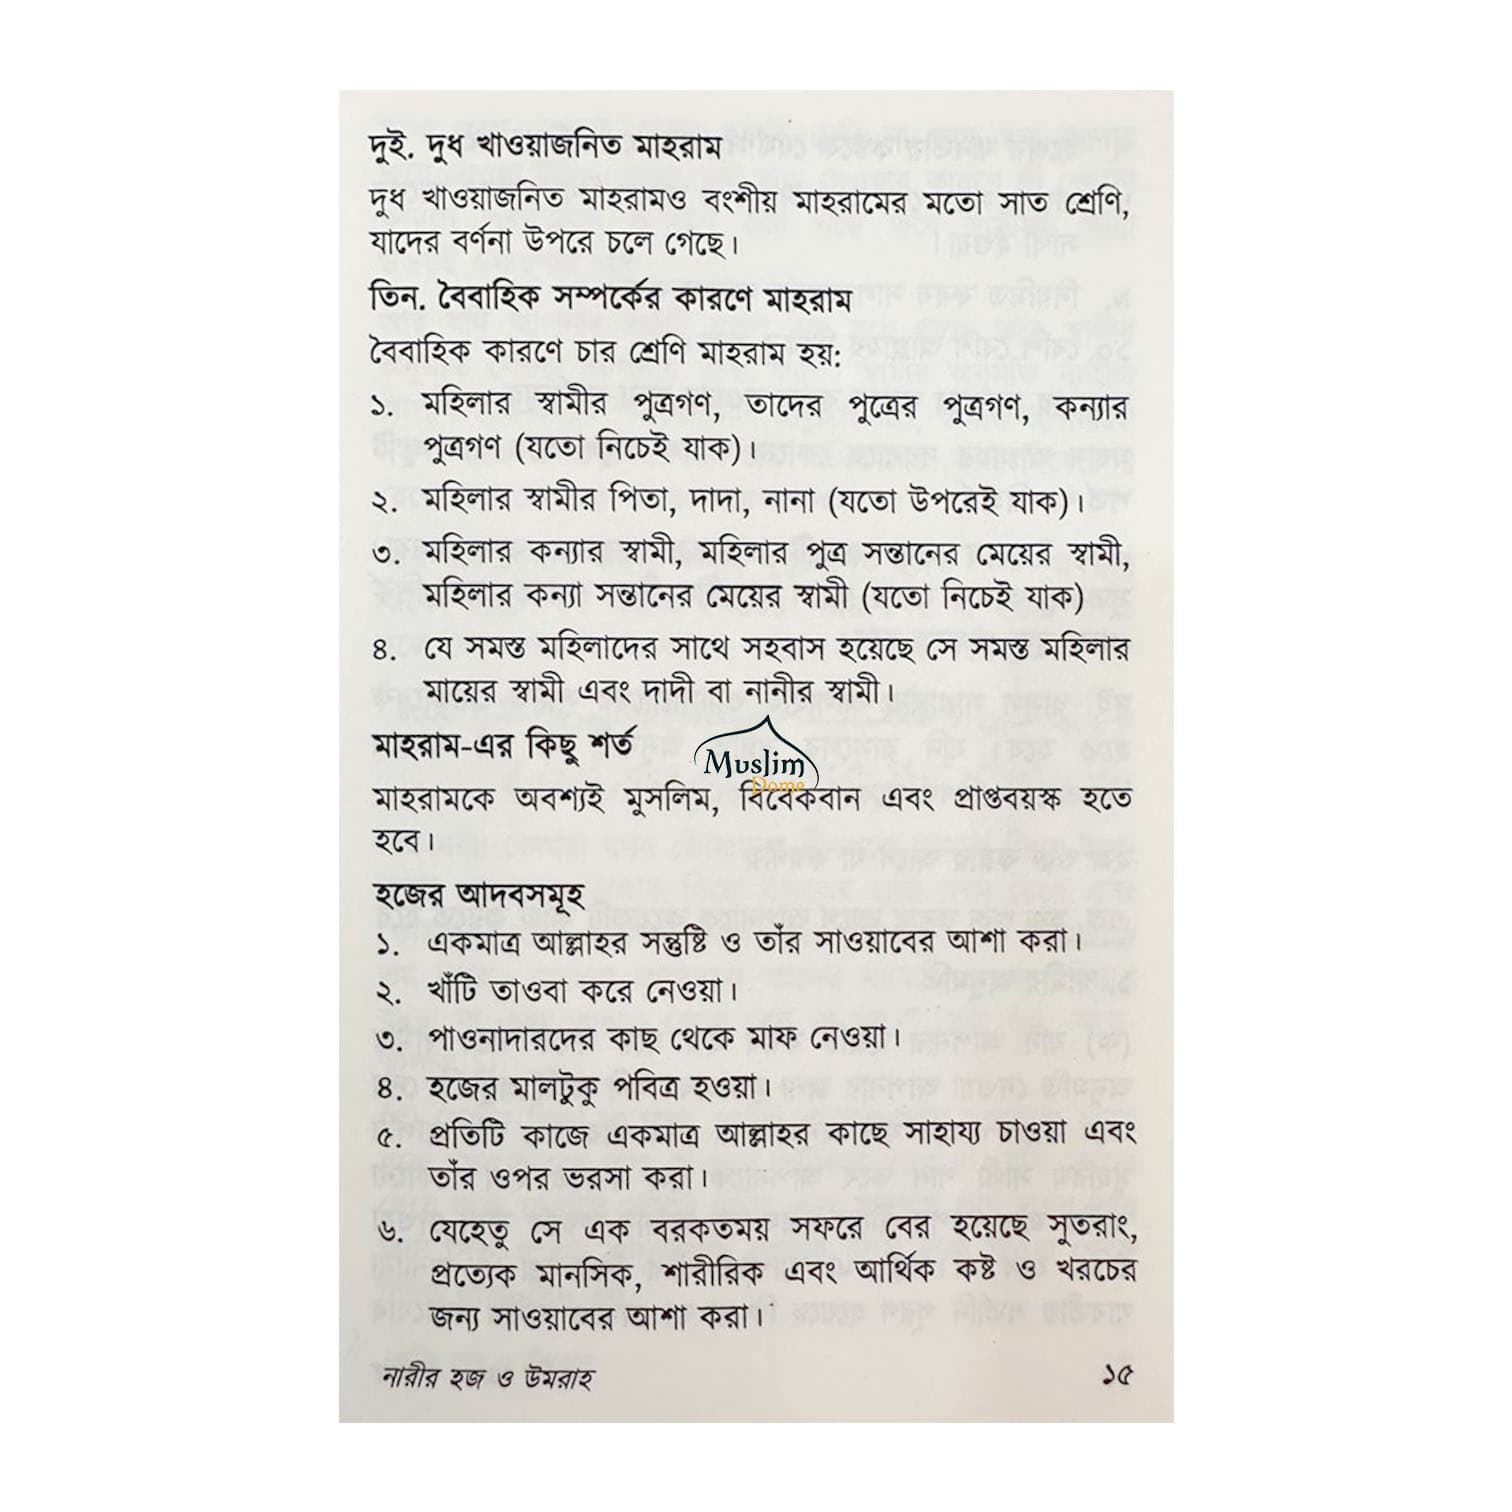 দুই. দুধ খাওয়াজনিত মাহরাম
দুধ খাওয়াজনিত মাহরামও বংশীয় মাহরামের মতো সাত শ্রেণি,
যাদের বর্ণনা উপরে চলে গেছে।
তিন. বৈবাহিক সম্পর্কের কারণে মাহরাম
বৈবাহিক কারণে চার শ্রেণি মাহরাম হয়:
১. মহিলার স্বামীর পুত্রগণ, তাদের পুত্রের পুত্রগণ, কন্যার
পুত্রগণ (যতো নিচেই যাক)।
২. মহিলার স্বামীর পিতা, দাদা, নানা (যতো উপরেই যাক)।
৩. মহিলার কন্যার স্বামী, মহিলার পুত্র সন্তানের মেয়ের স্বামী,
মহিলার কন্যা সন্তানের মেয়ের স্বামী (যতো নিচেই যাক)
৪. যে সমস্ত মহিলাদের সাথে সহবাস হয়েছে সে সমস্ত মহিলার
মায়ের স্বামী এবং দাদী বা নানীর স্বামী।
মাহরাম-এর কিছু শর্ত
Muslim
Dome
মাহরামকে অবশ্যই মুসলিম, বিবেকবান এবং প্রাপ্তবয়স্ক হতে
হবে।
হজের আদবসমূহ
১. একমাত্র আল্লাহর সন্তুষ্টি ও তাঁর সাওয়াবের আশা করা।
২. খাঁটি তাওবা করে নেওয়া।
৩. পাওনাদারদের কাছ থেকে মাফ নেওয়া।
৪. হজের মালটুকু পবিত্র হওয়া।
৫. প্রতিটি কাজে একমাত্র আল্লাহর কাছে সাহায্য চাওয়া এবং
তাঁর ওপর ভরসা করা।
৬. যেহেতু সে এক বরকতময় সফরে বের হয়েছে সুতরাং,
প্রত্যেক মানসিক, শারীরিক এবং আর্থিক কষ্ট ও খরচের
জন্য সাওয়াবের আশা করা।
নারীর হজ ও উমরাহ ১৫